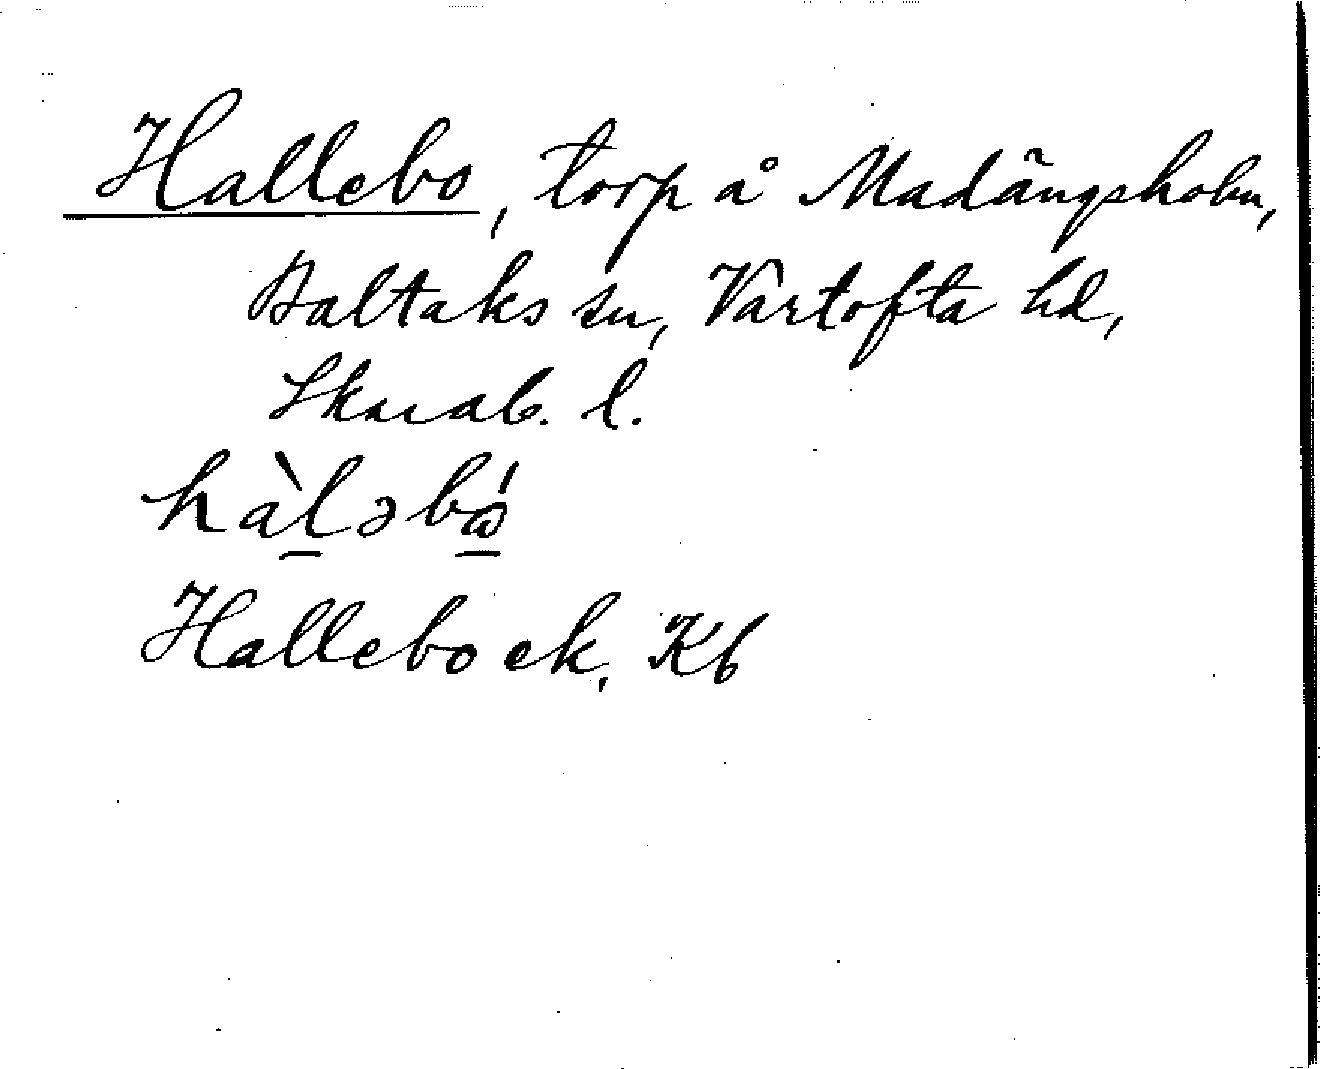 Hallebo, torp å Madängsholm,
Baltaks sn, Vartofta hd,
Skarab. l.
hàl̠əbɷ̠́
Hallebo ek, Kb